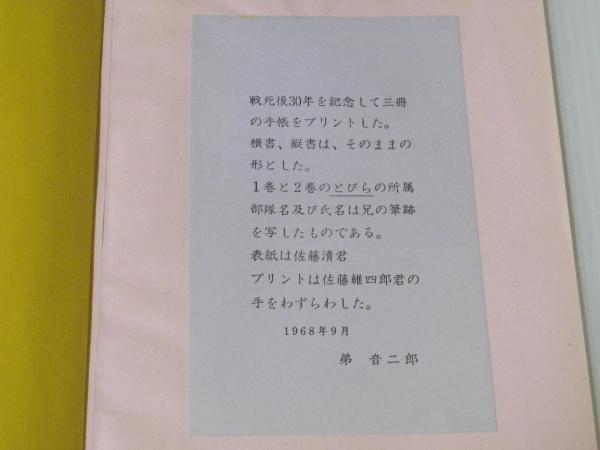 戦死後30年を記念して三冊
の手帳をプリントした。
横書、縦書は、そのままの
形とした。
1巻と2巻のとびらの所属
部隊名及び氏名は兄の筆跡
を写したものである。
表紙は佐藤清君
プリントは佐藤維四郎君の
手をわずらわした。
1968年9月
弟 音二郎